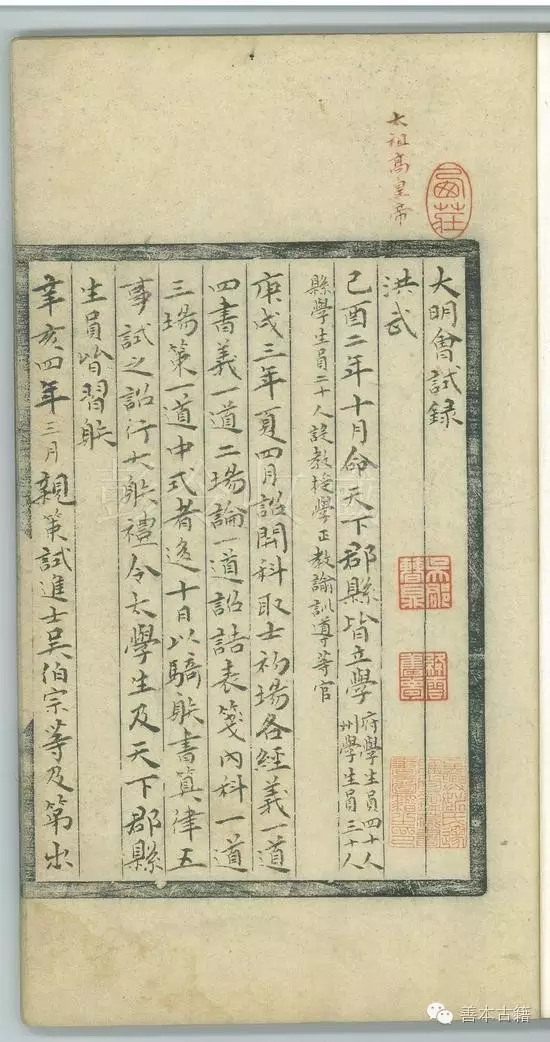 太祖高皇帝
大明會試錄
洪武
己酉二年十月命天下郡縣皆立學府學生員四十人州學生員三十人
縣學生員二十人設教授學正教諭訓導等官
庚戌三年夏四月詔開科取士初場各經義一道
四書義一道二場論一道詔誥表箋內科一道
三場策一道中式者逾十日以騎射書算律五
事試之詔行大射禮令太學生及天下郡縣
生員皆習射
辛亥四年三月親策試進士吳伯宗等及第出
善本古籍